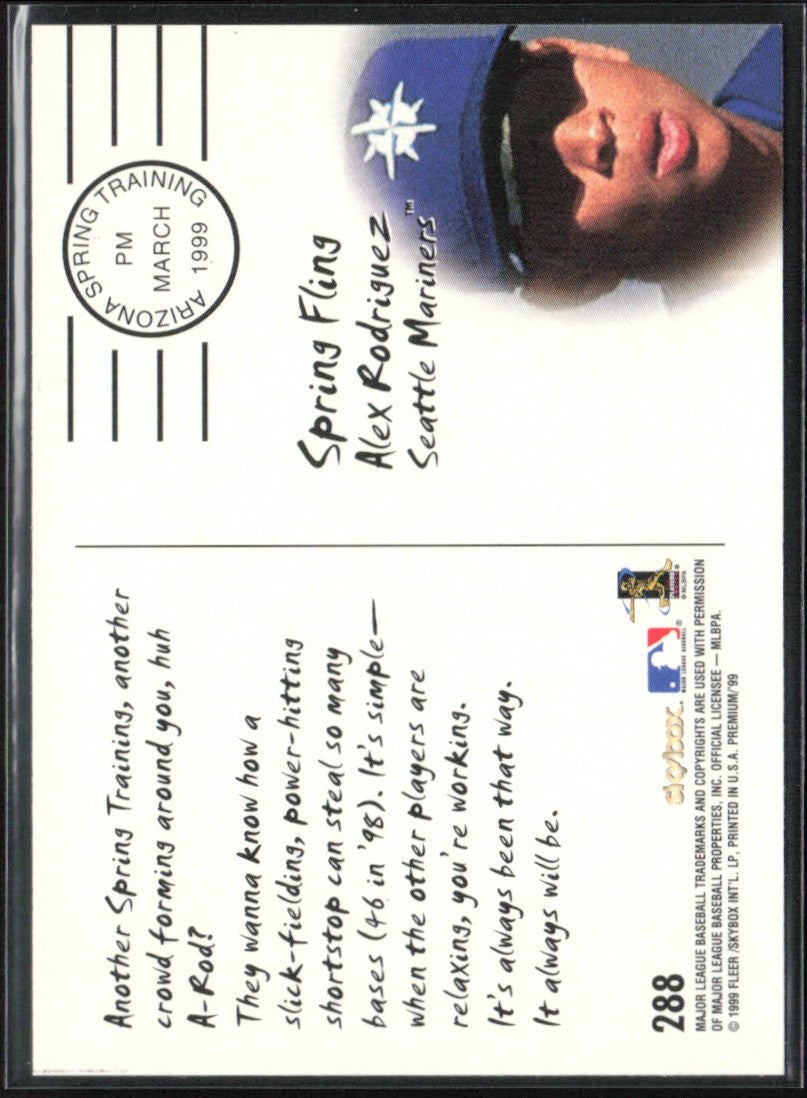 Another Spring Training, another
crowd forming around you, huh
A-Rod?
They wanna know how a
slick-fielding, power-hitting
shortstop can steal so many
bases (46 in '98). It's simple—
when the other players are
relaxing, you're working.
It's always been that way.
It always will be.
ARIZONA SPRING TRAINING
PM
MARCH
1999
Spring Fling
Alex Rodriguez
Seattle Mariners™
288
skybox®
MAJOR LEAGUE BASEBALL®
©MLBPA
MAJOR LEAGUE BASEBALL TRADEMARKS AND COPYRIGHTS ARE USED WITH PERMISSION
OF MAJOR LEAGUE BASEBALL PROPERTIES, INC. OFFICIAL LICENSEE — MLBPA.
© 1999 FLEER /SKYBOX INT'L. LP, PRINTED IN U.S.A. PREMIUM/'99